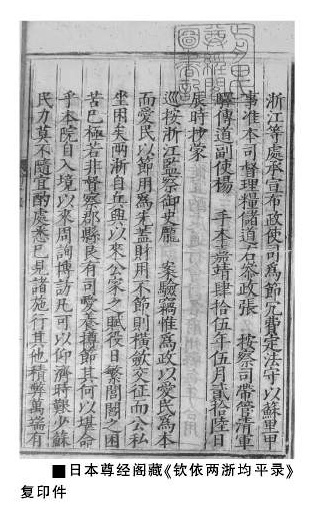 前田氏
尊經閣
圖書記
浙江等處承宣布政使司為節冗費定法守以蘇里甲
事准本司督理糧儲道右叅政張 按察司帶管清軍
驛傳道副使楊 手本嘉靖肆拾伍年伍月貳拾陸日
辰時抄蒙
巡按浙江監察御史龐 案驗竊惟為政以愛民為本
而愛民以節用為先蓋財用不節則橫斂交征而公私
坐困矣兩浙自兵興以來公家之賦役日繁閭閻之困
苦已極若非督察郡縣良有司愛養撙節其何以堪命
乎本院自入境以來周詢博訪凡可以仰濟時艱少蘇
民力莫不隨宜酌處悉已見諸施行其他積弊萬端有
■日本尊经阁藏《钦依两浙均平录》
复印件